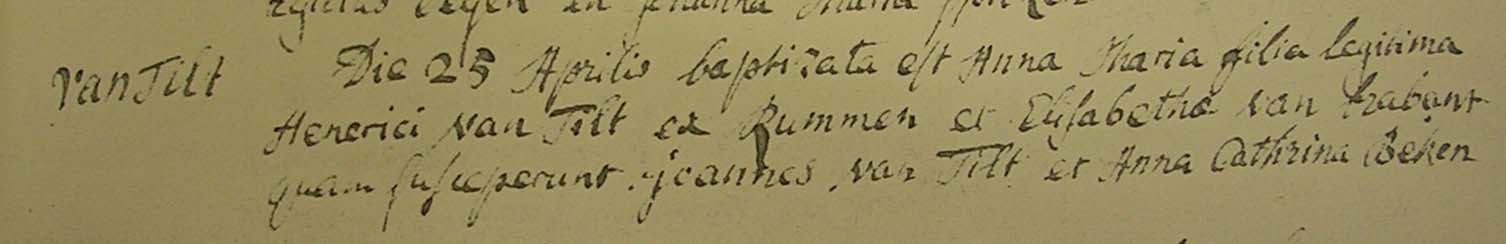 en
Van Tilt Die 25 Aprilis baptizata est Anna Maria filia legitima
Henerici van Tilt ex Rummen et Elisabetha van brabant
quam susceperunt joannes van Tilt et Anna Cathrina Beken